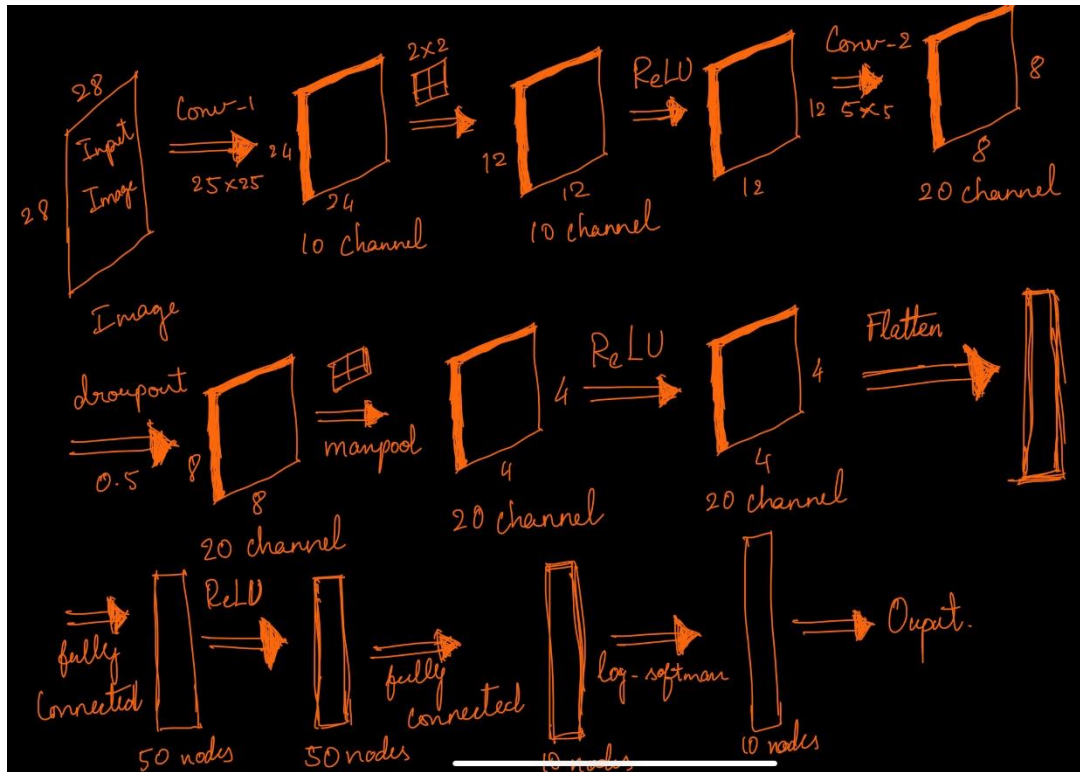 28
Input
Image
28
Image
Conv-1
25x25
24
24
10 channel
2x2
12
12
10 channel
ReLU
12
12
Conv-2
5x5
8
8
20 channel
droupout
0.5
8
8
20 channel
manpool
4
4
20 channel
ReLU
4
4
20 channel
Flatten
fully
connected
50 nodes
ReLU
50 nodes
fully
connected
10 nodes
log-softman
10 nodes
Ouput.